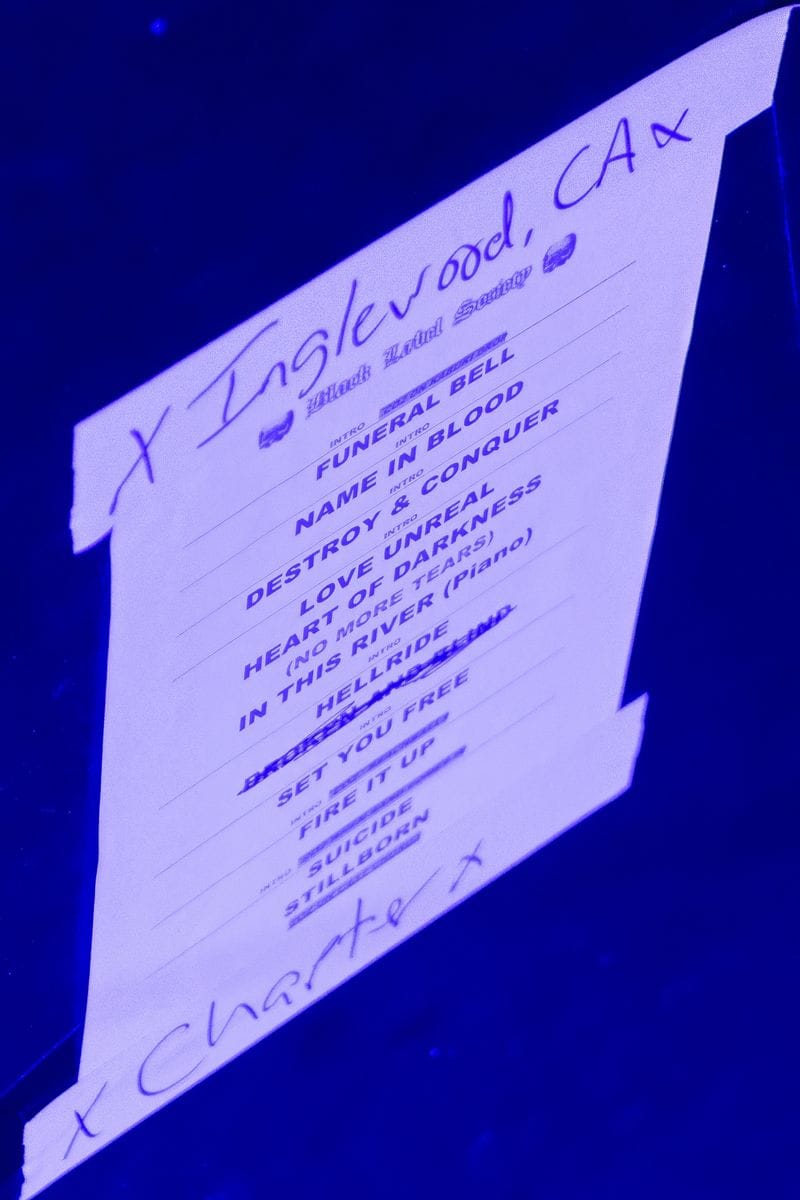 X Inglewood, CA x
Black Label Society
INTRO
FUNERAL BELL
INTRO
NAME IN BLOOD
INTRO
DESTROY & CONQUER
INTRO
LOVE UNREAL
HEART OF DARKNESS
(NO MORE TEARS)
IN THIS RIVER (Piano)
INTRO
HELLRIDE
BROKEN AND BLIND
INTRO
SET YOU FREE
INTRO
FIRE IT UP
INTRO
SUICIDE
STILLBORN
x Charter x